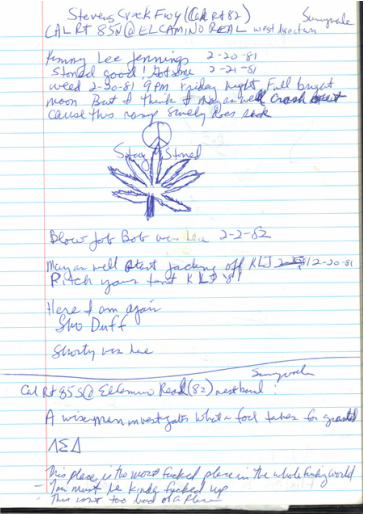 Stevens Creek Fwy (Cal Rt 82) Sunnyvale
CAL Rt 85N @ EL CAMINO REAL west direction
Kenny Lee Jennings 2-20-81
Stoned good! Got some 2-21-81
weed 2-20-81 9 PM Friday Night Full bright
moon But I think I may as well crash
Cause this ramp Surely does suck
Stay Stoned
Blow Job Bob was here 2-2-82
May as well Start jacking off KLJ 2-20-81
Pitch your tent KLJ 81
Here I am again
Duff
Shorty was here
Sunnyvale
Cal Rt 85 S @ El Camino Real (82) westbound:
A wise man investigates what a fool takes for granted
ΛΣΔ
This place is the most fucked place in the whole fucking world
- You must be kinda fucked up
- This isn't too bad of a place